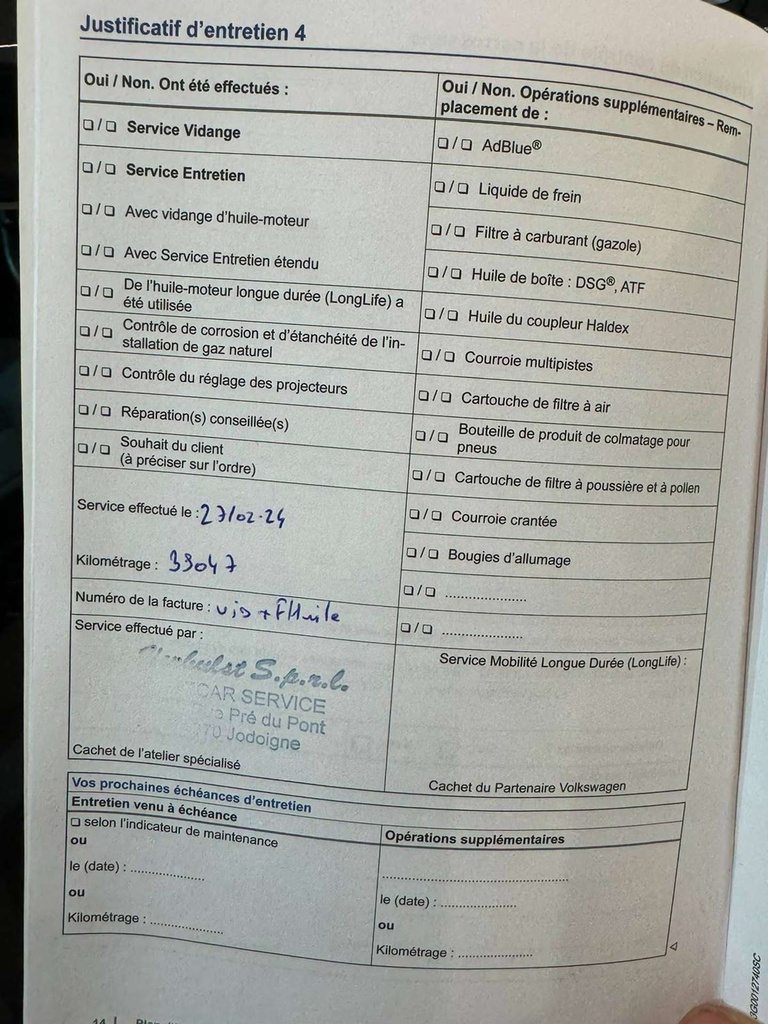 Justificatif d'entretien 4
Oui / Non. Ont été effectués :
❑ / ❑ Service Vidange
❑ / ❑ Service Entretien
❑ / ❑ Avec vidange d'huile-moteur
❑ / ❑ Avec Service Entretien étendu
❑ / ❑ De l'huile-moteur longue durée (LongLife) a
été utilisée
❑ / ❑ Contrôle de corrosion et d'étanchéité de l'in-
stallation de gaz naturel
❑ / ❑ Contrôle du réglage des projecteurs
❑ / ❑ Réparation(s) conseillée(s)
❑ / ❑ Souhait du client
(à préciser sur l'ordre)
Service effectué le : 27/02-24
Kilométrage : 33047
Numéro de la facture : vid + FHuile
Service effectué par :
S.p.r.l.
CAR SERVICE
Pré du Pont
70 Jodoigne
Cachet de l'atelier spécialisé
Oui / Non. Opérations supplémentaires – Rem-
placement de :
❑ / ❑ AdBlue®
❑ / ❑ Liquide de frein
❑ / ❑ Filtre à carburant (gazole)
❑ / ❑ Huile de boîte : DSG®, ATF
❑ / ❑ Huile du coupleur Haldex
❑ / ❑ Courroie multipistes
❑ / ❑ Cartouche de filtre à air
❑ / ❑ Bouteille de produit de colmatage pour
pneus
❑ / ❑ Cartouche de filtre à poussière et à pollen
❑ / ❑ Courroie crantée
❑ / ❑ Bougies d'allumage
❑ / ❑ ........................
❑ / ❑ ........................
Service Mobilité Longue Durée (LongLife) :
Cachet du Partenaire Volkswagen
Vos prochaines échéances d'entretien
Entretien venu à échéance
❑ selon l'indicateur de maintenance
ou
le (date) : ......................
ou
Kilométrage : ......................
Opérations supplémentaires
......................................................
le (date) : ......................
ou
Kilométrage : ......................
3G0012740SC
14